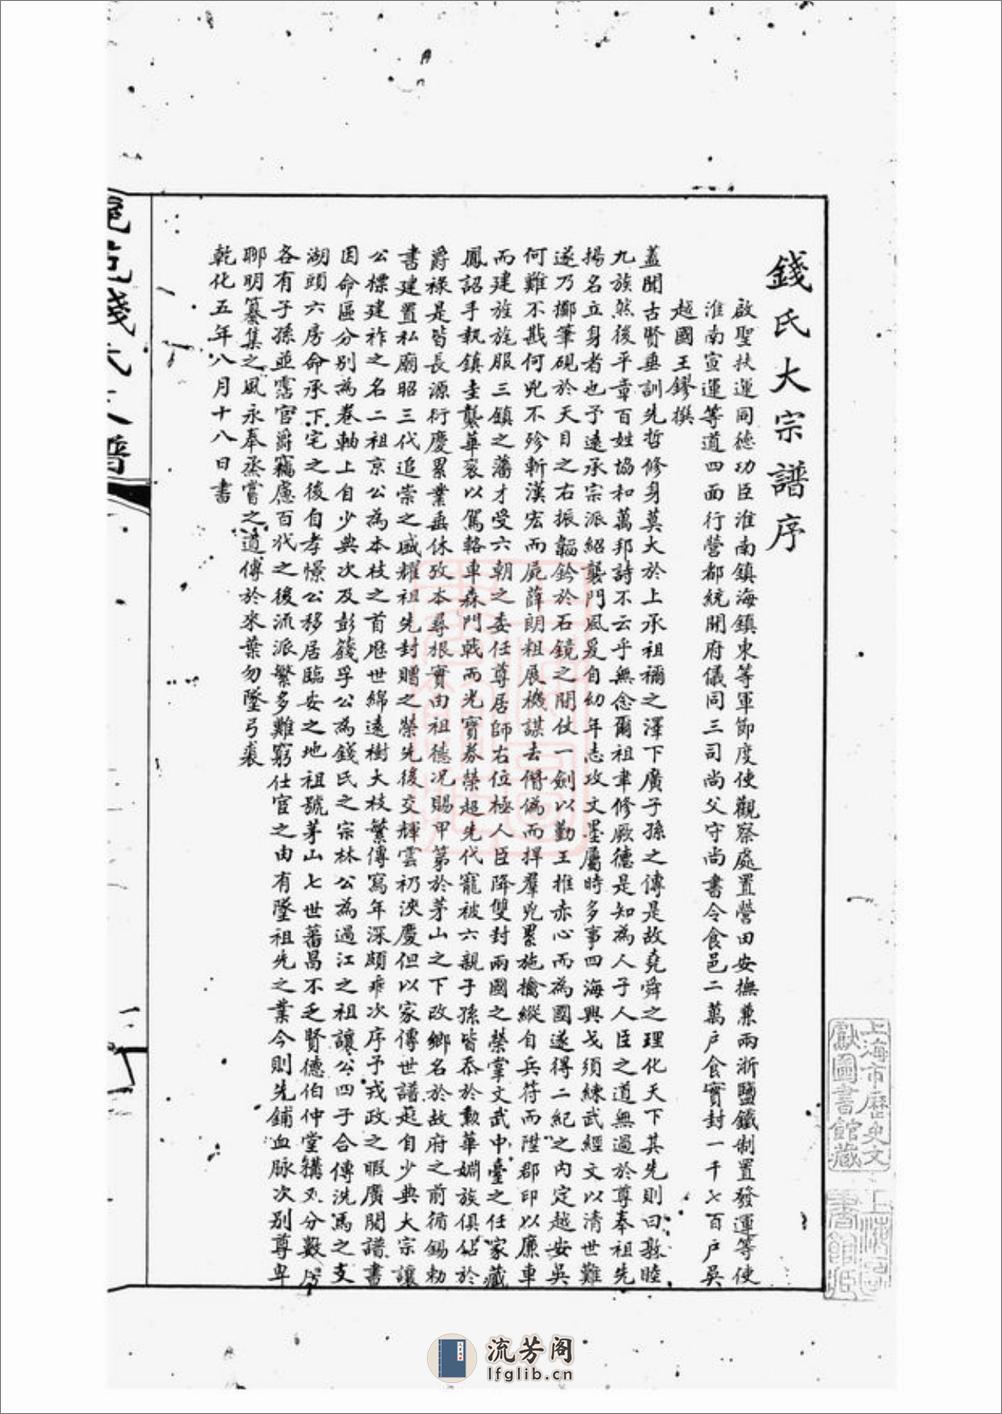 錢氏大宗譜序
啟聖扶運同德功臣淮南鎮海鎮東等軍節度使觀察處置營田安撫兼兩浙鹽鐵制置發運等使
淮南宣運等道四面行營都統開府儀同三司尚父守尚書令食邑二萬戶食實封一千七百戶吳
越國王鏐撰
蓋聞古賢垂訓先哲修身莫大於上承祖禰之澤下廣子孫之傳是故堯舜之理化天下其先則曰敦睦
九族然後平章百姓協和萬邦詩不云乎無念爾祖聿修厥德是知為人子人臣之道無過於尊奉祖先
揚名立身者也予遠承宗派紹襲門風爰自幼年志攻文墨屬時多事四海興戈須練武經文以清世難
遂乃擲筆硯於天目之右振韜鈐於石鏡之間仗一劍以勤王推赤心而為國遂得二紀之內定越安吳
何難不戡何兇不殄斬漢宏而屍薛朗粗展機謀去僭偽而捍羣兇累施擒縱自兵符而陞郡印以廉車
而建旌旄服三鎮之藩才受六朝之委任尊居師右位極人臣降雙封兩國之榮掌文武中臺之任家藏
鳳詔手執鎮圭襲華袞以駕輅車森門戟而光寶券榮超先代寵被六親子孫皆忝於勳華姻族俱佔於
爵祿是皆長源衍慶累業垂休攷本尋根實由祖德况賜甲第於茅山之下改鄉名於故府之前循錫勅
書建置私廟昭三代追崇之盛耀祖先封贈之榮先後交輝雲礽浹慶但以家傳世譜起自少典大宗讓
公標建祚之名二祖京公為本枝之首歷世綿遠樹大枝繁傳寫年深頗乖次序予戎政之暇廣閱譜書
因命區分別為卷軸上自少典次及彭籛孚公為錢氏之宗林公為過江之祖讓公四子合傳洗馬之支
湖頭六房命承下宅之後自孝憬公移居臨安之地祖號茅山七世蕃昌不乏賢德伯仲堂構分數房
各有子孫並霑官爵竊慮百代之後流派繁多難窮仕官之由有墜祖先之業今則先鋪血脉次別尊卑
聊明纂集之風永奉烝嘗之道傳於來葉勿墜弓裘
乾化五年八月十八日書
上海市歷史文
獻圖書館藏
流芳阁
lfglib.cn